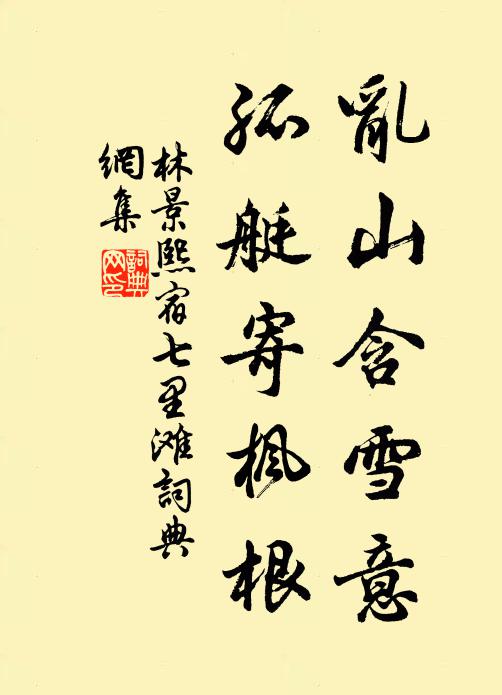 亂山含雪意
孤艇寄楓根
林景熙宿七里滩詞典
網集
詞典
网印